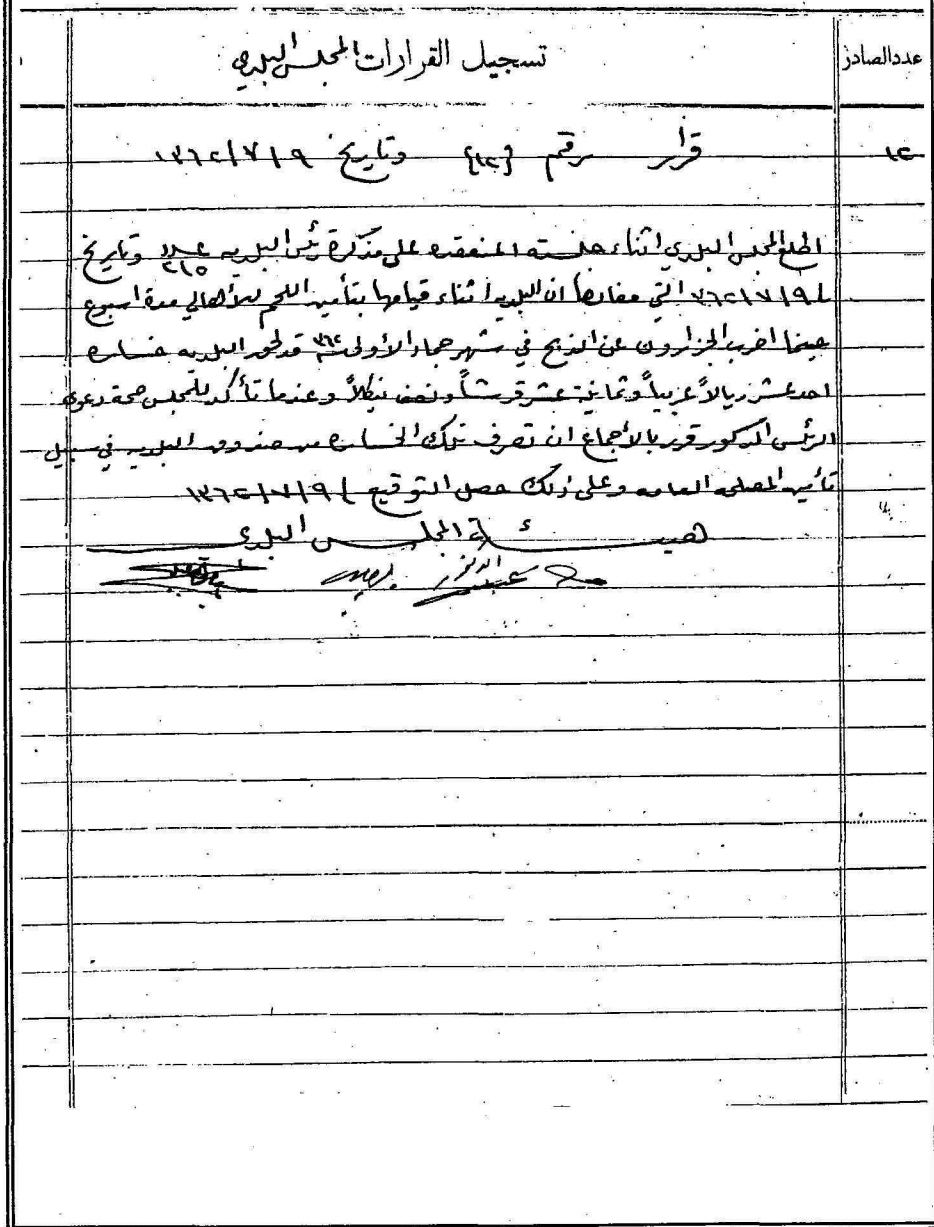 عدد الصادر
تسجيل القرارات المجلس البلدي
١٢ قرار رقم {١٢} وتاريخ ١٣٦٢/٧/٩
اطلع المجلس البلدي اثناء جلسته المنعقده على مذكرة رئيس البلديه عدد ٢١٥ وتاريخ
٣٦٢/٧/٩ التي مفادها ان البلديه اثناء قيامها بتأمين اللحم للأهالي مدة اسبوع
حينما اضرب الجزارون عن الذبح في شهر جماد الأولى ٣٦٢ قد لحق البلديه خساره
احد عشر ريالاً عربياً وثمانية عشر قرشاً ونصف نيكلاً وعندما تأكد للمجلس صحة دعوى
الرئيس المذكور قرر بالأجماع ان تصرف تلك الخساره من صندوق البلديه في سبيل
تأمين المصلحه العامه وعلى ذلك حصل التوقيع ١٣٦٢/٧/٩
هيئة المجلس البلدي